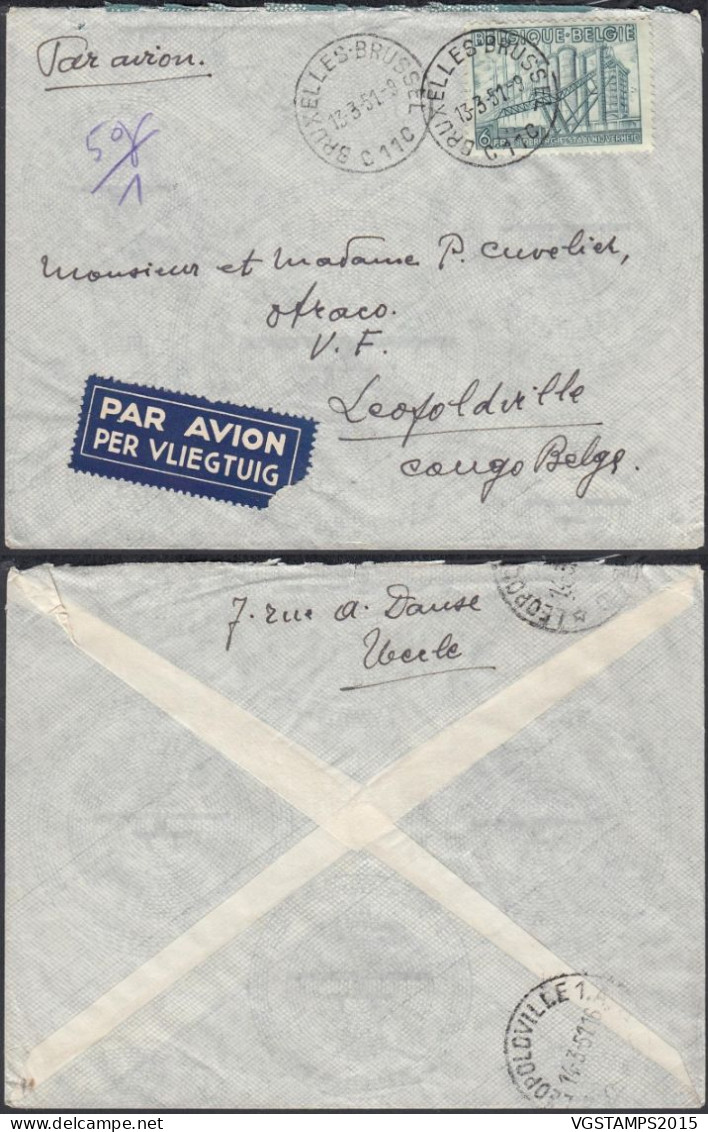 Par avion.
BRUXELLES-BRUSSEL
13-3-51-9
C 11 C
BRUXELLES-BRUSSEL
13-3-51-9
C 11 C
BELGIQUE-BELGIE
6 FR
1
Monsieur et Madame P. Cuvelier,
Otraco.
V. F.
Leopoldville
Congo Belge.
PAR AVION
PER VLIEGTUIG
7. rue A. Danse
Uccle
LEOPOL
LEOPOLDVILLE 1.
14-3-51
VGSTAMPS2015